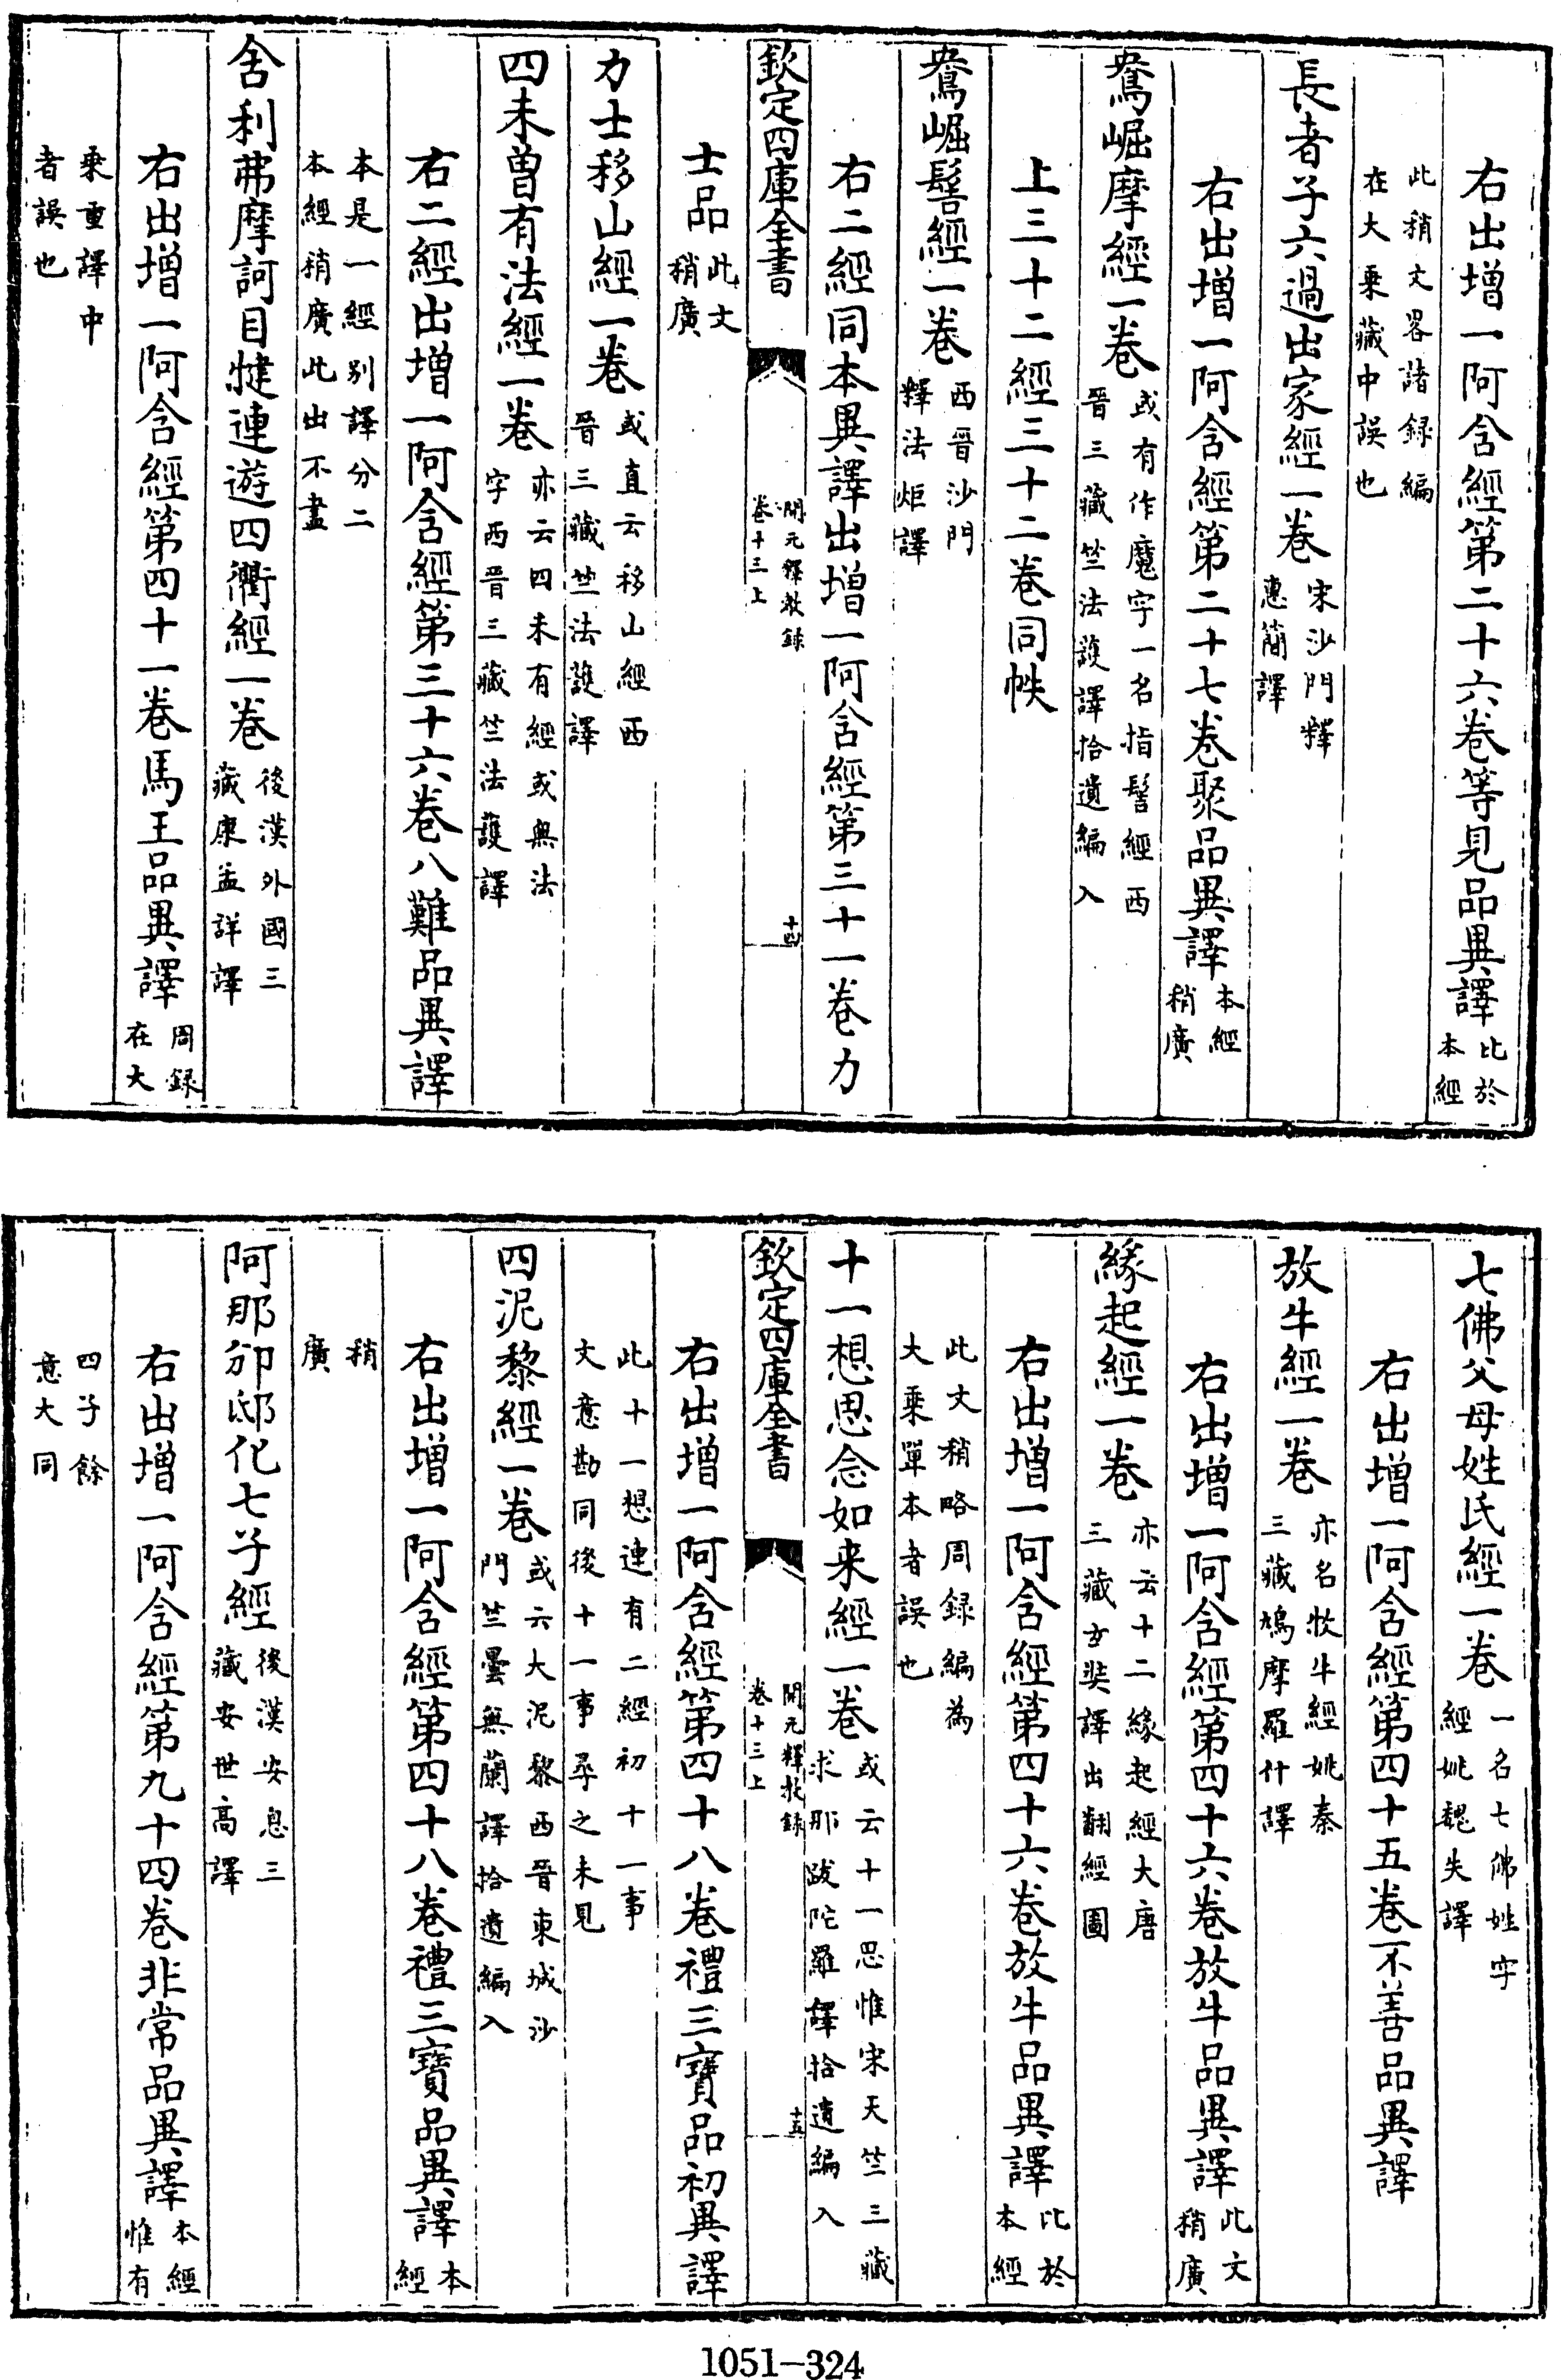 右出増一阿含經第二十六卷等見品異譯比於本經
此稍文畧諸録編在大乗藏中誤也
長者子六過出家經一卷宋沙門釋惠簡譯
右出増一阿含經第二十七卷聚品異譯本經稍廣
鴦崛摩經一卷或有作魔字一名指髻經西晉三藏竺法護譯拾遺編入
上三十二經三十二卷同帙
鴦崛髻經一卷西晋沙門釋法炬譯
右二經同本異譯出増一阿含經第三十一卷力
欽定四庫全書
開元釋教録卷十三上
十四
士品此文稍廣
力士移山經一卷或直云移山經西晉三藏竺法護譯
四未曽有法經一卷亦云四未有經或無法字西晋三藏竺法護譯
右二經出増一阿含經第三十六卷八難品異譯
本是一經别譯分二本經稍廣此出不盡
舍利弗摩訶目犍連遊四衢經一卷後漢外國三藏康孟詳譯
右出増一阿含經第四十一卷馬王品異譯周録在大
乗重譯中者誤也
七佛父母姓氏經一卷一名七佛姓字經姚魏失譯
右出増一阿含經第四十五卷不善品異譯
放牛經一卷亦名牧牛經姚秦三藏鳩摩羅什譯
右出増一阿含經第四十六卷放牛品異譯此文稍廣
緣起經一卷亦云十二緣起經大唐三藏玄奘譯出翻經圖
右出増一阿含經第四十六卷放牛品異譯比於本經
此文稍略周録編為大乗單本者誤也
十一想思念如来經一卷或云十一思惟宋天竺三藏求那跋陀羅譯拾遺編入
欽定四庫全書
開元釋教録卷十三上
十五
右出増一阿含經第四十八卷禮三寶品初異譯
此十一想連有二經初十一事文意勘同後十一事尋之未見
四泥黎經一卷或云大泥黎西晉東城沙門竺曇無蘭譯拾遺編入
右出増一阿含經第四十八卷禮三寶品異譯本經
稍廣
阿那邠邸化七子經後漢安息三藏安世高譯
右出増一阿含經第九十四卷非常品異譯本經惟有
四子餘意大同
1051-324